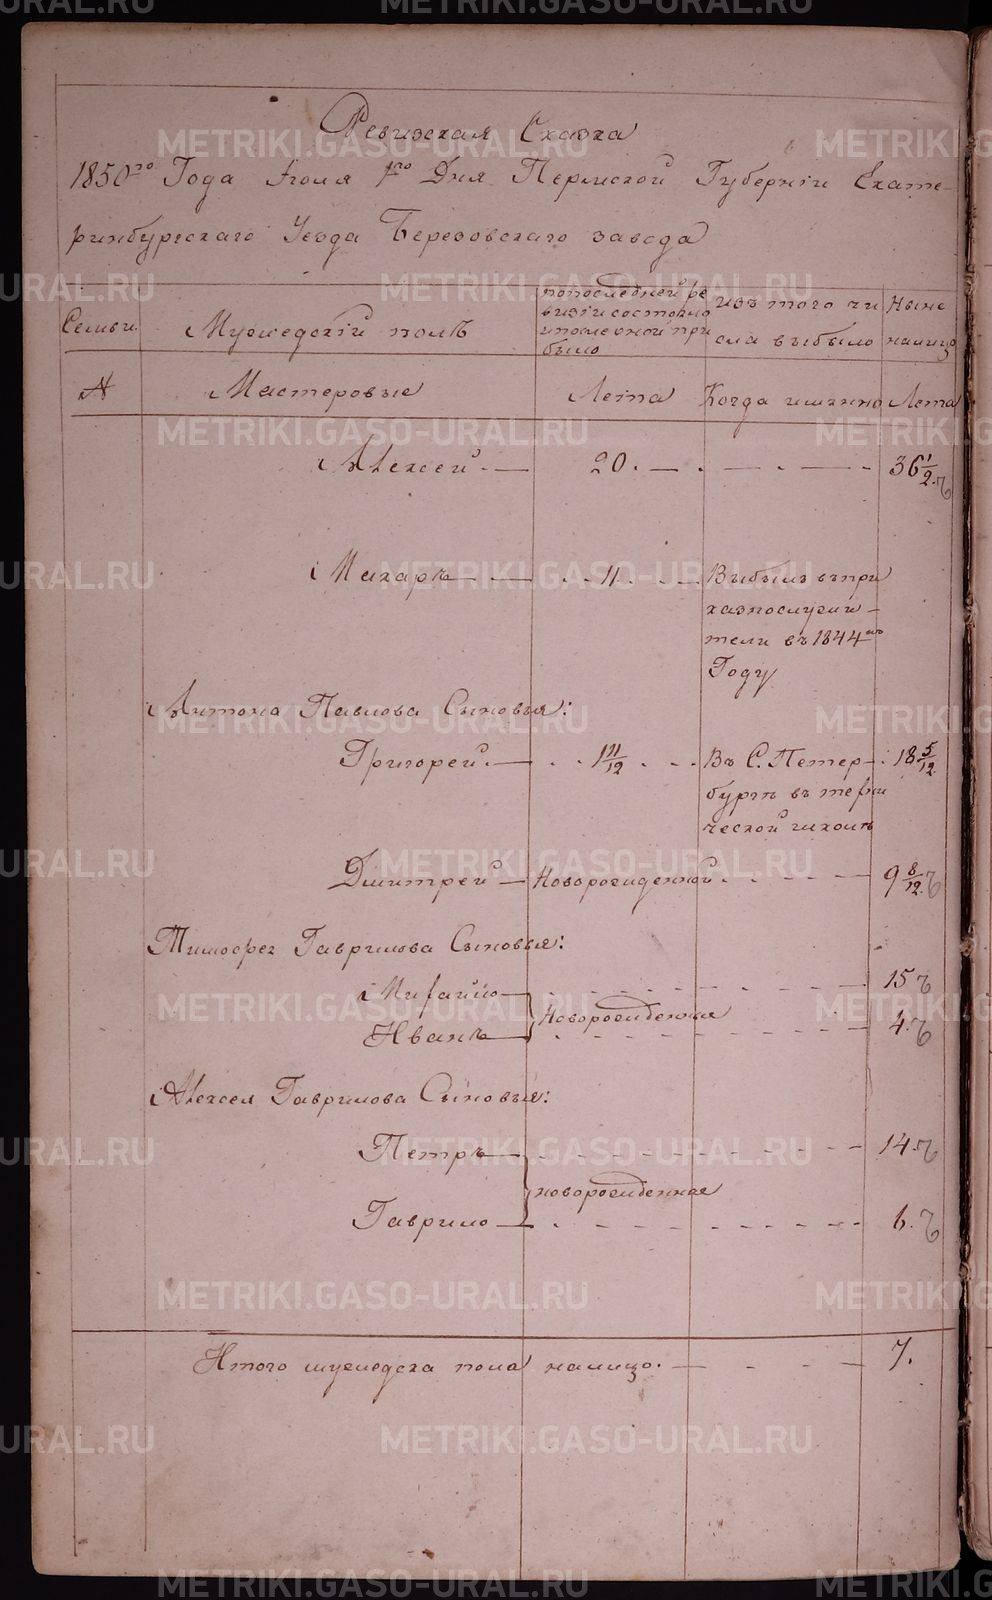 Ревизская Сказка
1850го Года Іюля 1го Дня Пермской Губерніи Екате-
ринбургскаго Уезда Березовскаго завода
Семьи
Мужедскій полъ
попоследней ре
визіи состояло
ипослеоной при
было
изъ того чи
сла выбыло
Ныне
налицо
№
Мастеровые
Лета
Когда имянно
Лета
Алексей. — 20. — 36 1/2.
Макаръ — 11 Выбылъ въпри
казнослужи-
тели въ 1844мъ
Году
Антона Павлова Сыновья:
Григорей. — 1 11/12 Въ С. Петер- 18 5/12
бургѣ въ техни
ческой школѣ
Дмитрей — Новорожденной 9 8/12.
Тимофея Гаврилова Сыновья:
Михайло — 15
Новорожденныя
Иванъ — 4.
Алексея Гаврилова Сыновья:
Петръ — 14.
новорожденныя
Гаврило — 6.
Итого мужедска пола налицо. — 7.
METRIKI.GASO-URAL.RU